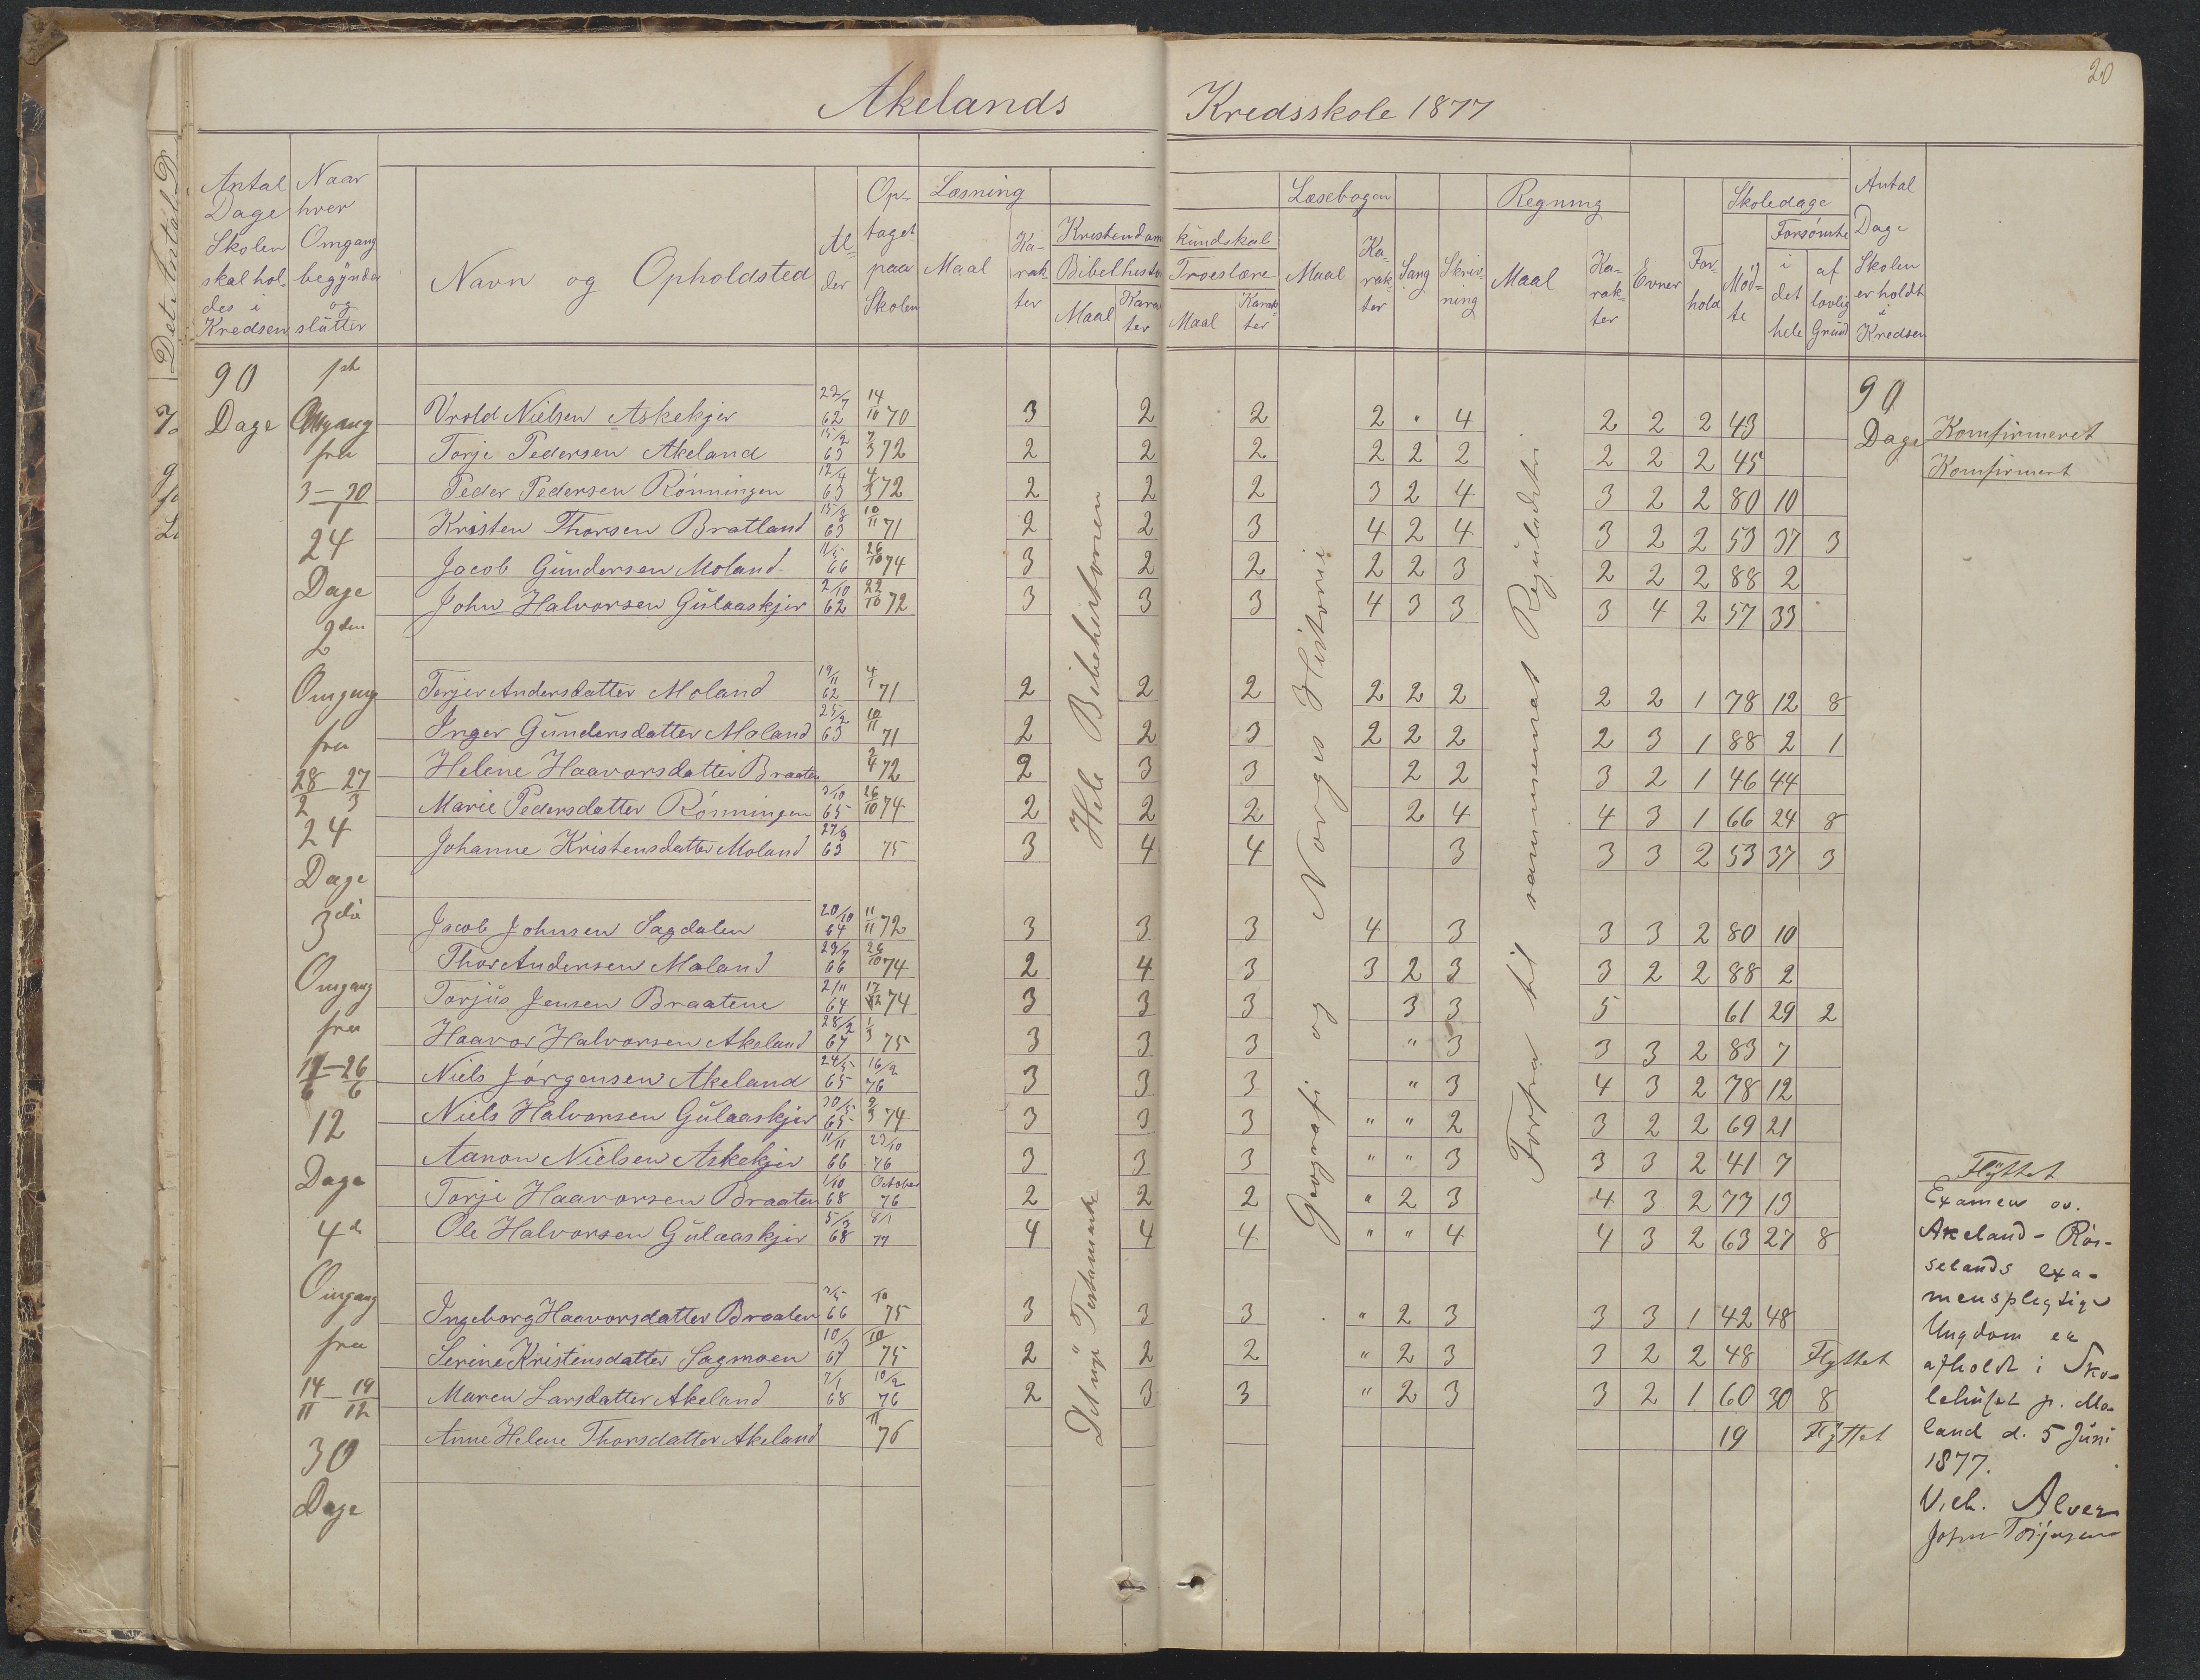 20
Akelands Kredsskole 1877
Antal Dage Skolen skal holdes i Kredsen
Naar hver Omgang begynder og slutter
Navn og Opholdsted
Alder
Optaget paa Skolen
Læsning
Maal
Karakter
Kristendomskundskab
Bibelhistorie
Maal
Karakter
Troeslære
Maal
Karakter
Læsebogen
Maal
Karakter
Sang
Skrivning
Regning
Maal
Karakter
Evner
Forhold
Skoledage
Mødte
Forsømte
i det hele
af lovlig Grund
Antal Dage Skolen er holdt i Kredsen
90 Dage
1ste Omgang fra 3–30/1
24 Dage
2den Omgang fra 28/2 27/3
24 Dage
3die Omgang fra 11/6–26/6
12 Dage
4de Omgang fra 14/11–19/12
30 Dage
Hele Bibelhistorien
Det nye Testamente
Geografi og Norges Historie
Forfra til sammensat Reguladetri
Vrold Nielsen Askekjer 22/7 62 14/10 70 3 2 2 2 " 4 2 2 2 43
Torje Pedersen Akeland 15/2 63 7/3 72 2 2 2 2 2 2 2 2 2 45
Peder Pedersen Rønningen 12/4 63 4/3 72 2 2 2 3 2 4 3 2 2 80 10
Kristen Thorsen Bratland 15/8 63 10/11 71 2 2 3 4 2 4 3 2 2 53 37 3
Jacob Gundersen Moland 11/5 66 26/10 74 3 2 2 2 2 3 2 2 2 88 2
John Halvorsen Gulaaskjer 2/10 62 22/10 72 3 3 3 4 3 3 3 4 2 57 33
Terjer Andersdatter Moland 19/11 62 4/1 71 2 2 2 2 2 2 2 2 1 78 12 8
Inger Gundersdatter Moland 25/2 63 10/11 71 2 2 3 2 2 2 2 3 1 88 2 1
Helene Haavorsdatter Braaten 2/4 72 2 3 3 2 2 3 2 1 46 44
Marie Pedersdatter Rønningen 3/10 65 26/10 74 2 2 2 2 4 4 3 1 66 24 8
Johanne Kristensdatter Moland 27/9 63 75 3 4 4 3 3 3 2 53 37 3
Jacob Johnsen Sagdalen 20/10 64 11/11 72 3 3 3 4 3 3 3 2 80 10
Thor Andersen Moland 29/7 66 26/10 74 2 4 3 3 2 3 3 2 2 88 2
Torjus Jensen Braatene 2/11 64 17/12 74 3 3 3 3 3 5 61 29 2
Haavor Halvorsen Akeland 28/2 67 1/3 75 3 3 3 " 3 3 3 2 83 7
Niels Jørgensen Akeland 24/5 65 16/2 76 3 3 3 " 3 4 3 2 78 12
Niels Halvorsen Gulaaskjer 30/5 65 2/3 74 3 3 3 " " 2 3 2 2 69 21
Aanon Nielsen Askekjer 11/11 66 23/10 76 3 3 3 " " 3 3 3 2 41 7
Torje Haavorsen Braaten 1/10 68 October 76 2 2 2 " 2 3 4 3 2 77 13
Ole Halvorsen Gulaaskjer 5/3 68 8/1 77 4 4 4 " " 4 4 3 2 63 27 8
Ingeborg Haavorsdatter Braaten 3/5 66 10 75 3 3 3 " 2 3 3 3 1 42 48
Serine Kristensdatter Sagmoen 10/ 67 10 75 2 2 2 " 2 3 3 2 2 48 Flyttet
Maren Larsdatter Akeland 7/1 68 10/2 76 2 3 3 " 2 3 3 2 1 60 30 8
Anne Helene Thorsdatter Akeland 11 76 19 Flyttet
90 Dage
Komfirmeret
Komfirmert
Flyttet
Examen ov.
Akeland - Røs-
selands exa-
menspligtige
Ungdom er
afholdt i Sko-
lehuset p. Mo-
land d. 5 Juni
1877.
Vich. Alver
John Torjusen
Det Antal D